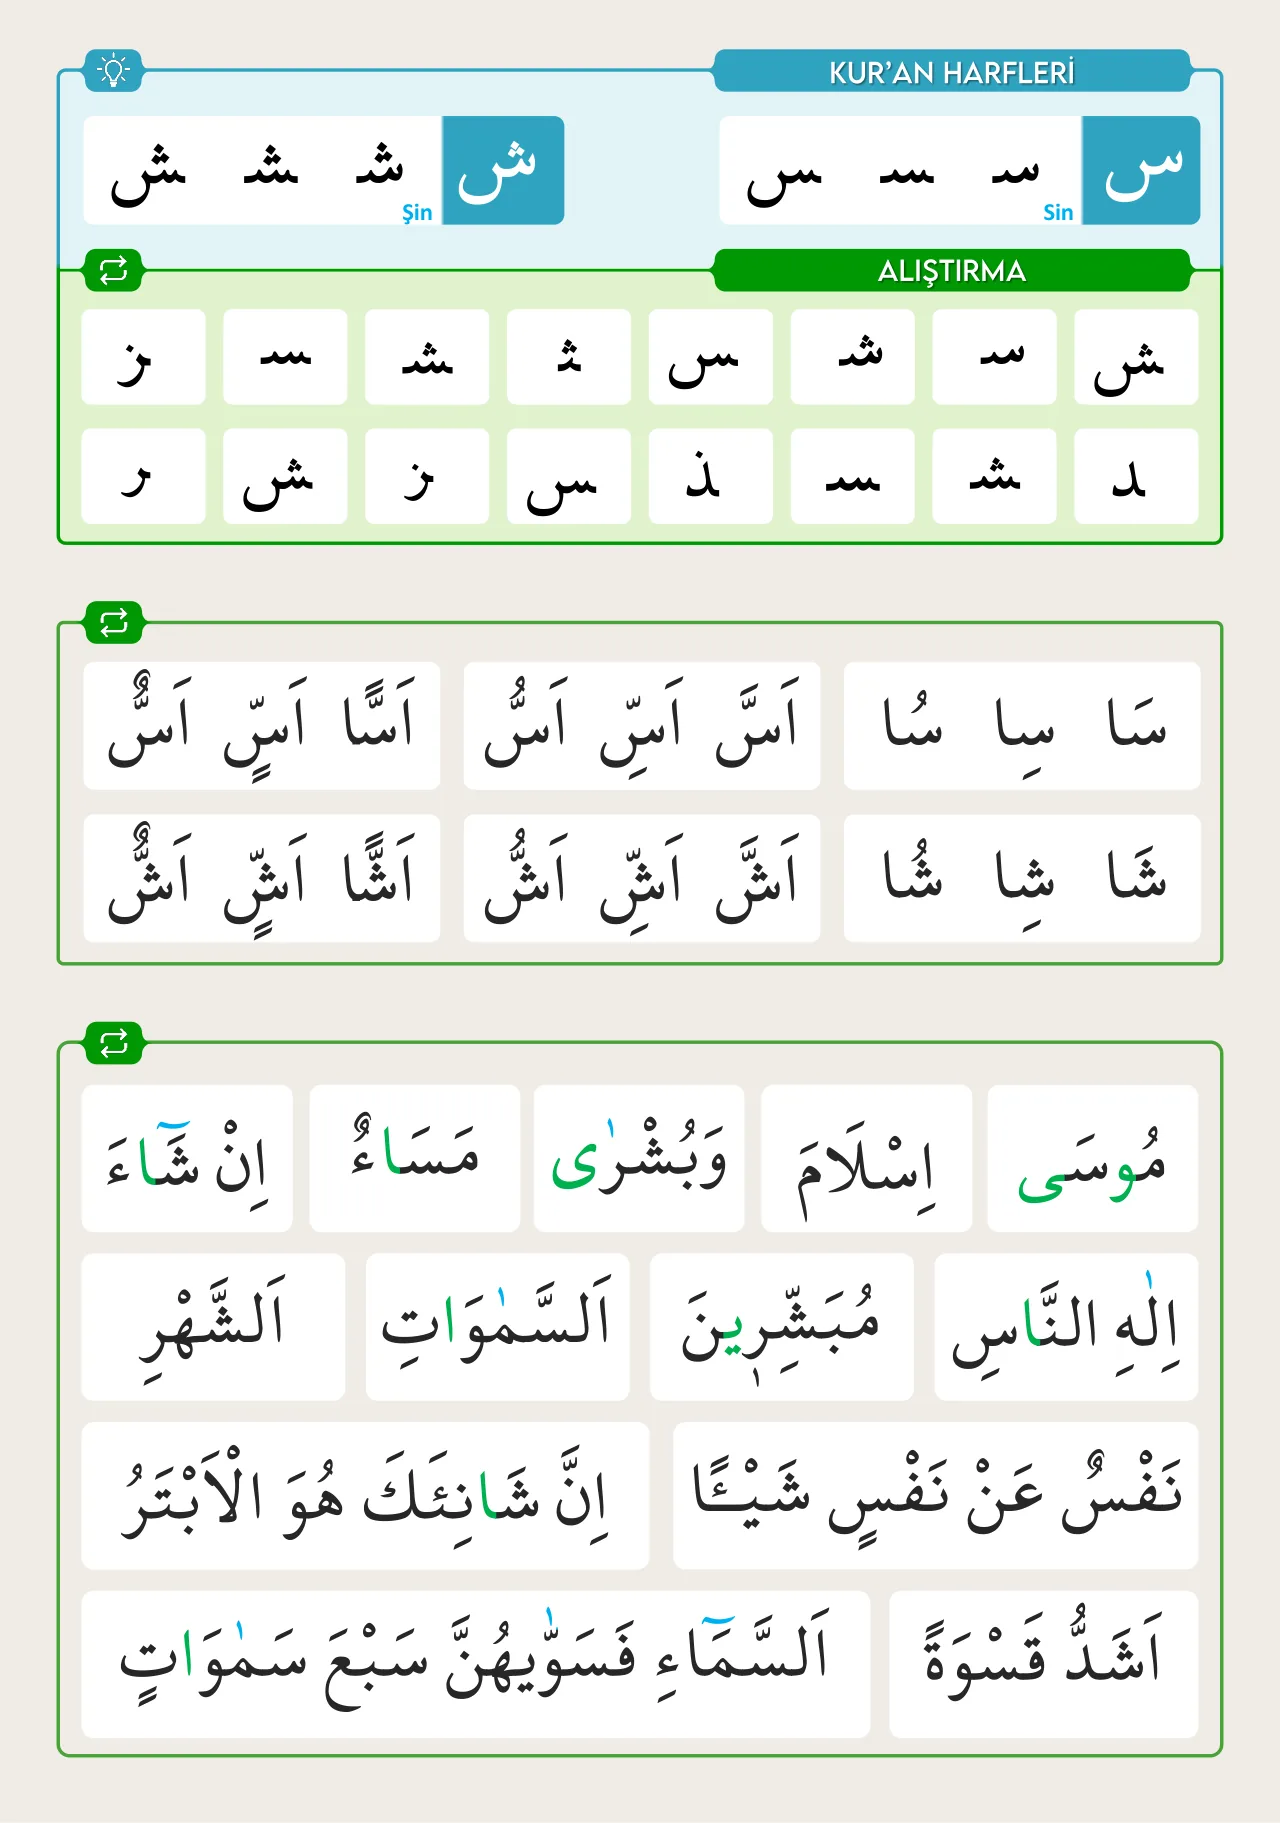 KUR’AN HARFLERİ
س سـ ـسـ ـس
Sin
ش شـ ـشـ ـش
Şin
ALIŞTIRMA
ـش سـ شـ ـس ـثـ ـشـ ـسـ ـز
ـد ـشـ ـسـ ـذ ـس ز ـش ر
سَا سِا سُا
اَسَّ اَسِّ اَسُّ
اَسًّا اَسٍّ اَسٌّ
شَا شِا شُا
اَشَّ اَشِّ اَشُّ
اَشًّا اَشٍّ اَشٌّ
مُوسَى اِسْلَامَ وَبُشْرٰى مَسَاءٌ اِنْ شَٓاءَ
اِلٰهِ النَّاسِ مُبَشِّرٖينَ اَلسَّمٰوَاتِ اَلشَّهْرِ
نَفْسٌ عَنْ نَفْسٍ شَيْـًٔا اِنَّ شَانِئَكَ هُوَ الْاَبْتَرُ
اَشَدُّ قَسْوَةً اَلسَّمَٓاءِ فَسَوّٰيهُنَّ سَبْعَ سَمٰوَاتٍ